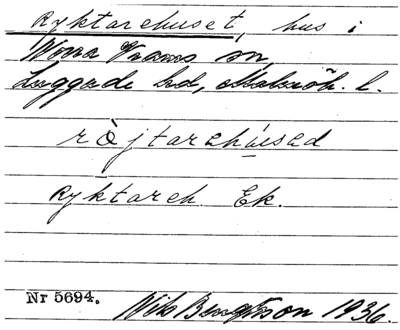 Ryktarehuset, hus i
Norra Vrams sn,
Luggude hd, Malmöh. l.
ròjtarehúsed
Ryktareh. Ek.
Nr 5694. Nils Bengtsson 1936.